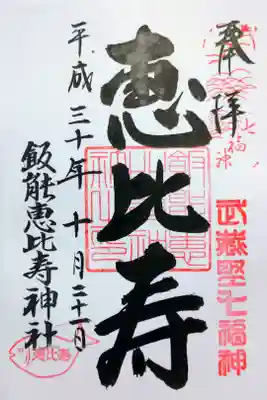 奉拝
七福神
武蔵野七福神
恵比寿
平成三十年十月二十一日
飯能恵比寿神社
恵比寿